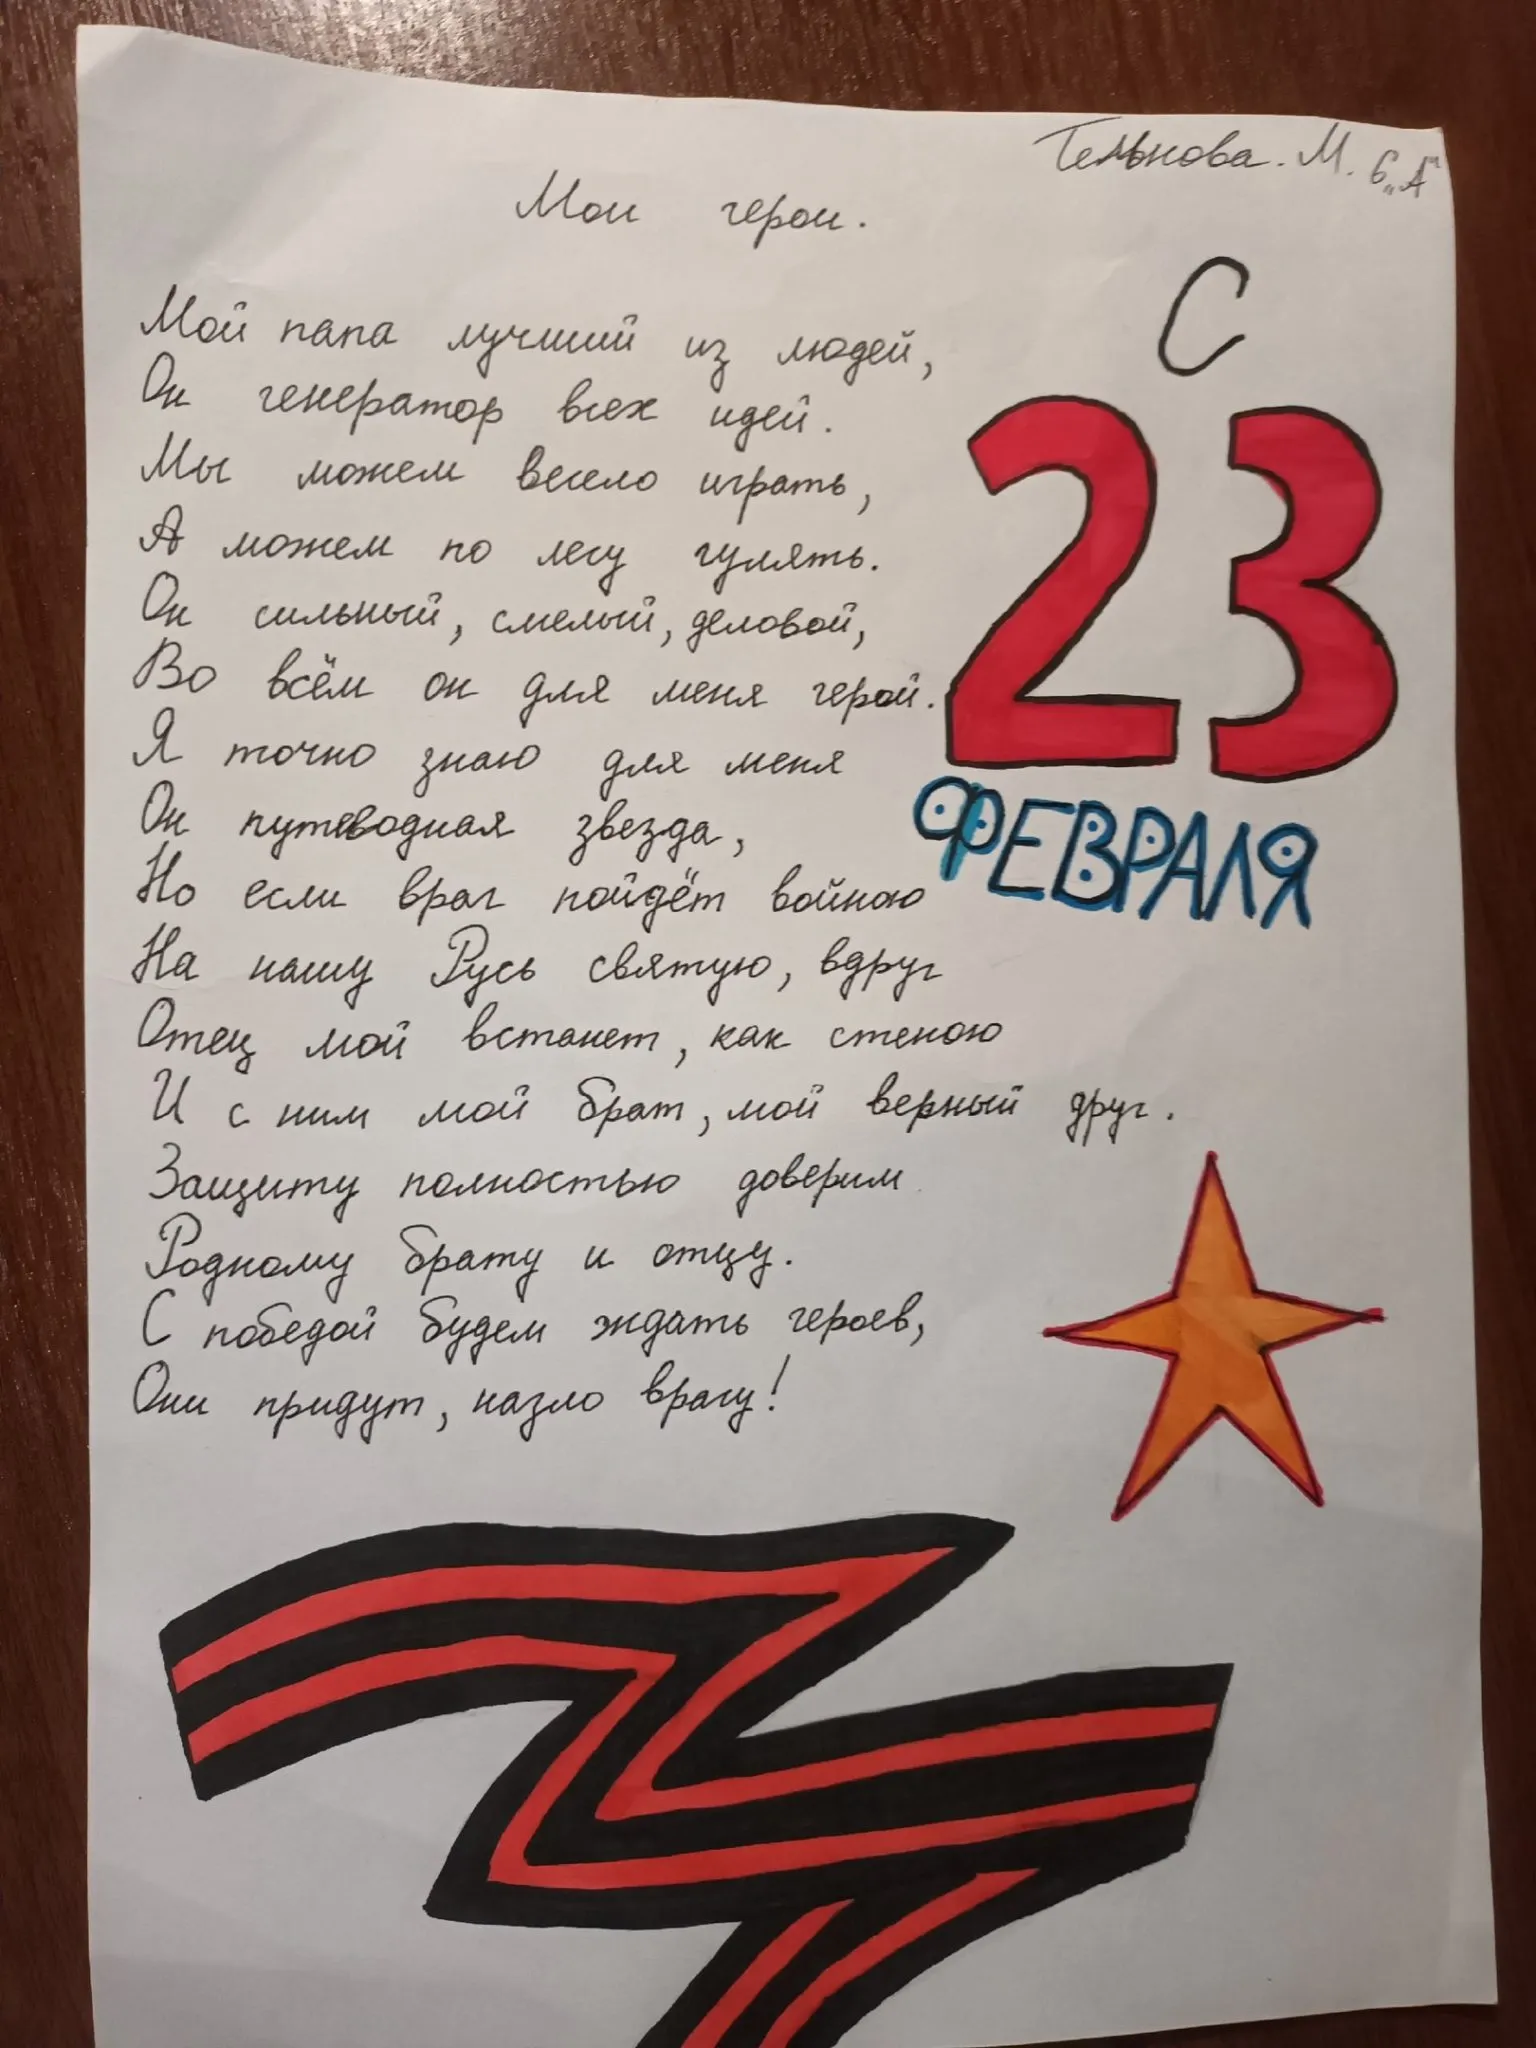 Тельнова. М. 6 „А"
Мои герои.
Мой папа лучший из людей,
Он генератор всех идей.
Мы можем весело играть,
А можем по лесу гулять.
Он сильный, смелый, деловой,
Во всём он для меня герой.
Я точно знаю для меня
Он путеводная звезда,
Но если враг пойдёт войною
На нашу Русь святую, вдруг
Отец мой встанет, как стеною
И с ним мой брат, мой верный друг.
Защиту полностью доверим
Родному брату и отцу.
С победой будем ждать героев,
Они придут, назло врагу!
С
23
ФЕВРАЛЯ